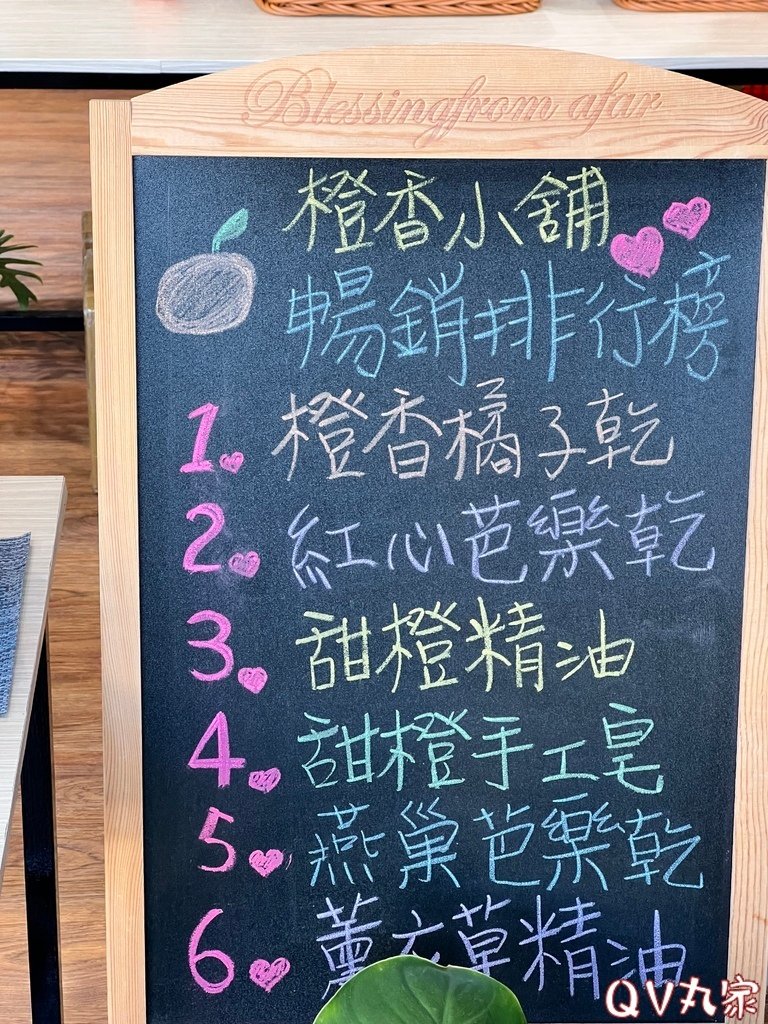 Blessing from afar
橙香小舖
暢銷排行榜
1. 橙香橘子乾
2. 紅心芭樂乾
3. 甜橙精油
4. 甜橙手工皂
5. 燕巢芭樂乾
6. 薰衣草精油
QV丸家